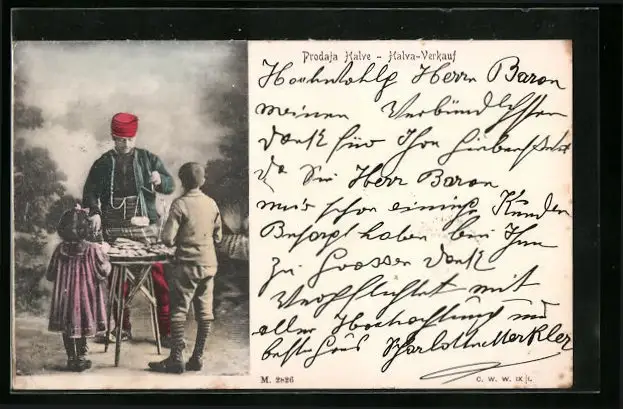 Prodaja Halve - Halva-Verkauf
Hochwohlg Herr Baron
meinen Verbündlichsten
Dank für Ihre
da Sie Herr Baron
mir schon einige Kunden
Besorgt haben bin Ihnen
zu Grossen Dank
Verpflichtet mit
aller Hochachtung und
besten Gruß Scharlotte Merkler
M. 2826
C. W. W. IX/1.